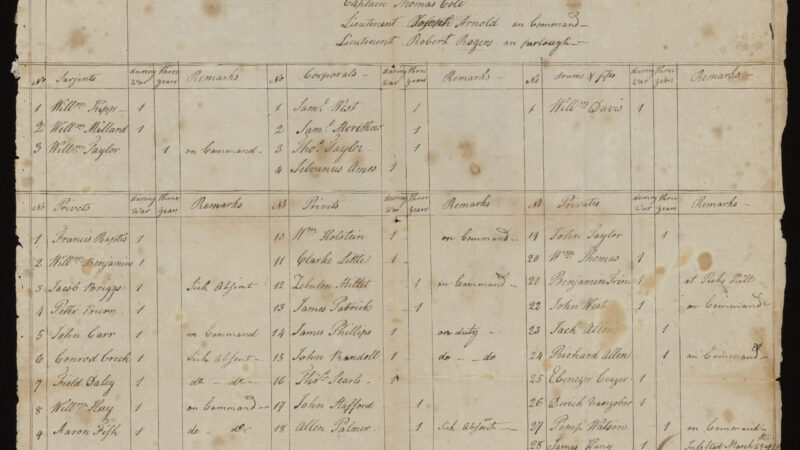 Captain Thomas Cole
Lieutenant Joseph Arnold on Command
Lieutenent Robert Rogers on furlough
No Sarjents during war three years Remarks No Corporals during war three years Remarks No drums & fifes during war three years Remarks
1 Willm Tripp 1 1 Saml West 1 1 Willm Davis 1
2 Willm Millard 1 2 Saml 1
3 Willm Taylor 1 on Command 3 Thos Taylor 1
4 Silvanus Ames 1
No Privets during war three years Remarks No Privits during war three years Remarks No Privates during war three years Remarks
1 Francis Baptis 1 10 Wm Holstein 1 on Command 19 John Taylor 1
2 Willm Benjamins 1 11 Clarke Little 1 20 Wm Thomas 1
3 Jacob Briggs 1 Sick Absent 12 Zebulen 1 on Command 21 Benjamen 1 at
4 Peter Brown 1 13 James Patrick 1 22 John West 1 on Command
5 John Carr 1 on Command 14 James Phillips 1 on duty 23 Jack Allen 1
6 Conrod Creek 1 Sick Absent 15 John Randoll 1 do do 24 Richard Allen 1 on Command
7 Field Daley 1 do do 16 Thos Searls 1 25 Ebenezer 1
8 Willm Hay 1 on Command 17 John Stafford 1 26 Derick 1
9 Aaron Fish 1 do do 18 Allen Palmer 1 Sick Absent 27 Pomp Watson 1 on Command
28 James 1 March